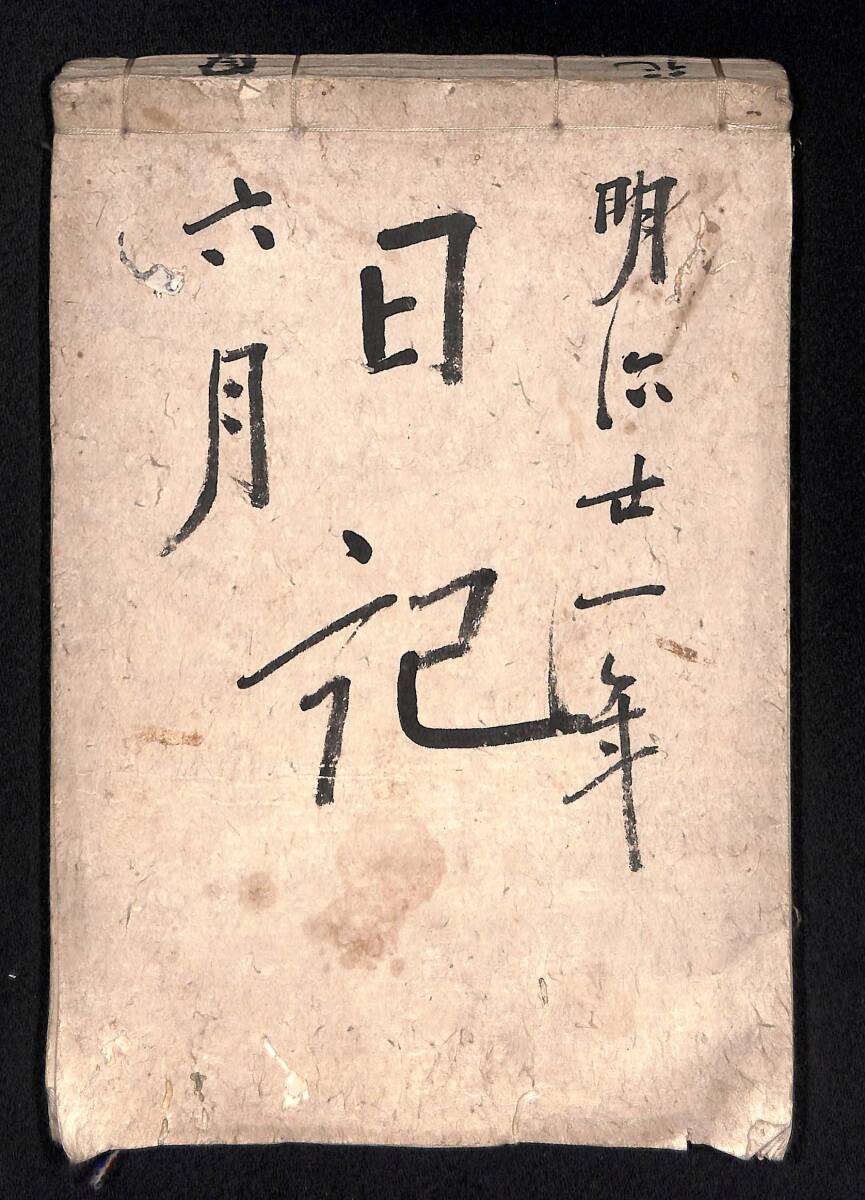 明治廿一年
日記
六月